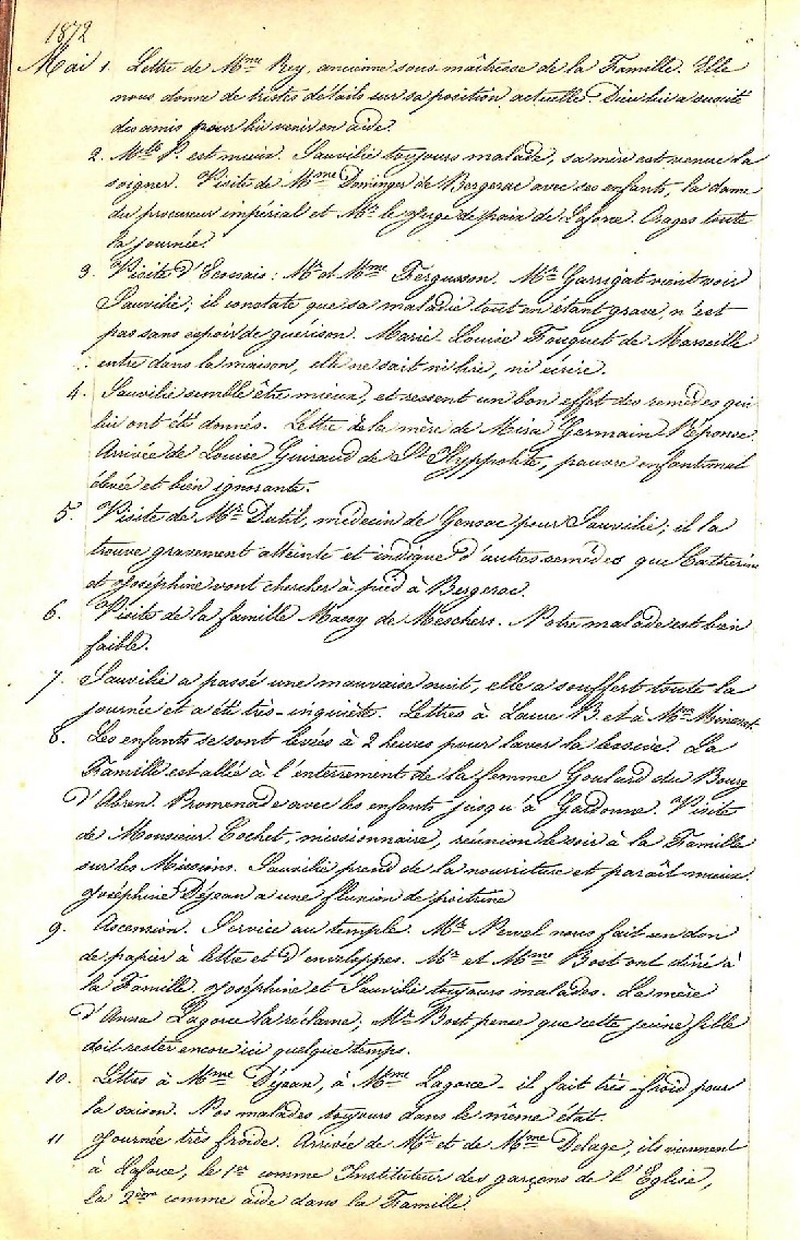 1872
Mai 1. Lettre de Mme Rey, ancienne sous-maîtresse de la Famille. Elle
nous donne de tristes détails sur sa position actuelle. Dieu lui a suscité
des amis pour lui venir en aide.
2. Melle P. est mieux. Sauvilie toujours malade, sa mère est venue la
soigner. Visite de Mme Domenger de Bergerac avec ses enfants, la dame
du procureur impérial et Mr le juge de paix de Laforce. Orages toute
la journée.
3. Visite d'Ecossais : Mr et Mme Fergusson. Mr Garrigat vient voir
Sauvilie ; il constate que sa maladie tout en étant grave, n'est
pas sans espoir de guérison. Marie-Louise Fouquet de Marseille
entre dans la maison, elle ne sait ni lire, ni écrire.
4. Sauvilie semble être mieux, et ressent un bon effet des remèdes qui
lui ont été donnés. Lettre de la mère de Misa Germain Réponse.
Arrivée de Louise Guiraud de St Hyppolite, pauvre enfant mal
élevée et bien ignorante.
5. Visite de Mr Dutil, médecin de Gensac pour Sauvilie ; il la
trouve gravement atteinte et indique d'autres remèdes que Catherine
et Joséphine vont chercher à pied à Bergerac.
6. Visite de la famille Massy de Meschers. Notre malade est bien
faible.
7. Sauvilie a passé une mauvaise nuit, elle a souffert toute la
journée et a été très-inquiète. Lettres à Laure B. et à Mme
8. Les enfants se sont levées à 2 heures pour laver la lessive. La
Famille est allée à l'enterrement de la femme Goulard du Bourg
d'Abren. Promenade avec les enfants jusqu'à Gardonne. Visite
de Monsieur Cochet, missionnaire, réunion le soir à la Famille
sur les Missions. Sauvilie prend de la nourriture et paraît mieux.
Joséphine Déjean a une fluxion de poitrine
9. Ascension. Service au temple. Mr Newel nous fait un don
de papier à lettre et d'enveloppes. Mr et Mme Bost ont dîné à
la Famille. Joséphine et Sauvilie toujours malades. La mère
d'Anna Lagorce la réclame ; Mr Bost pense que cette jeune fille
doit rester encore ici quelque temps.
10. Lettres à Mme Déjean, à Mme Lagorce - il fait très-froid pour
la saison. Nos malades toujours dans le même état.
11 Journée très froide. Arrivée de Mr et de Mme Delage, ils viennent
à Laforce, le 1er comme Instituteur des garçons de l'Eglise,
la 2ème comme aide dans la Famille.